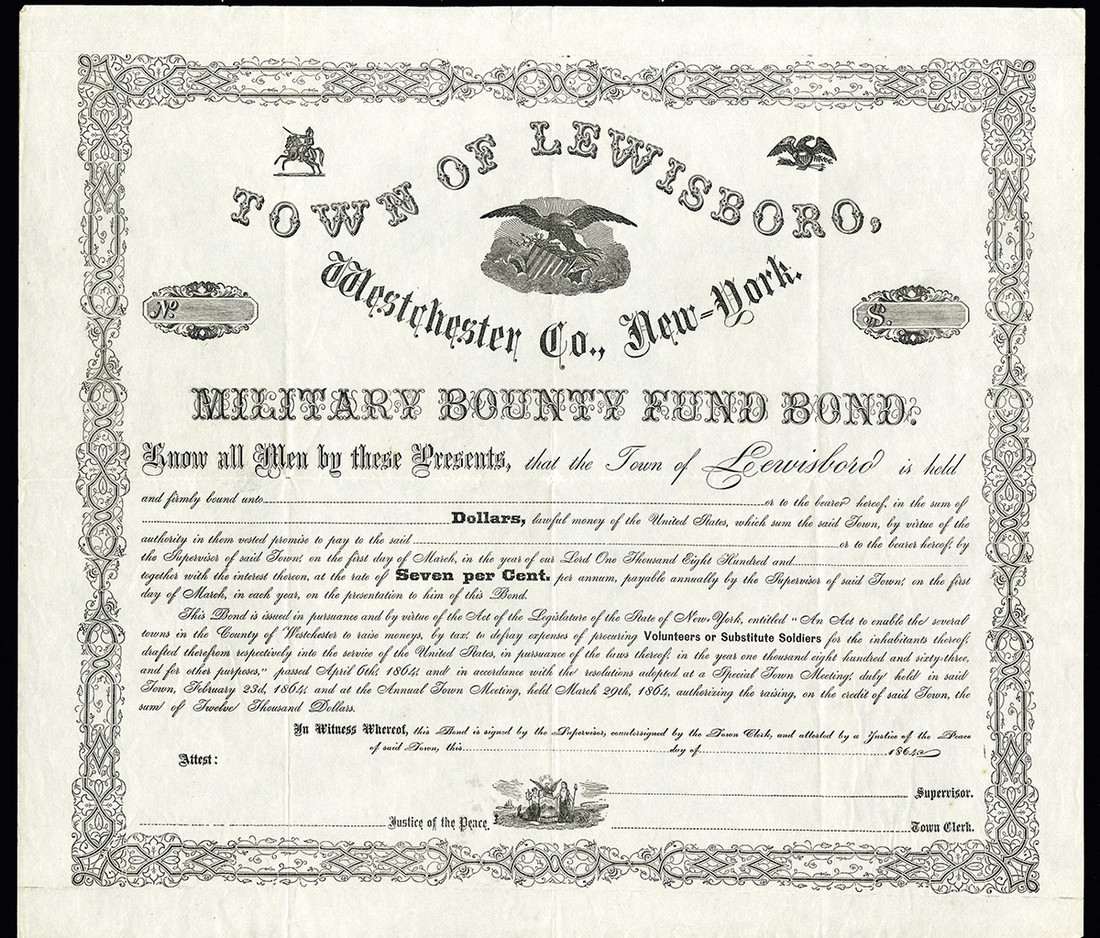 TOWN OF LEWISBORO,
Westchester Co., New-York.
No
$.
MILITARY BOUNTY FUND BOND.
Know all Men by these Presents, that the Town of Lewisboro is held
and firmly bound unto or to the bearer hereof, in the sum of
Dollars, lawful money of the United States, which sum the said Town, by virtue of the
authority in them vested promise to pay to the said or to the bearer hereof, by
the Supervisor of said Town, on the first day of March, in the year of our Lord One Thousand Eight Hundred and
together with the interest thereon, at the rate of Seven per Cent. per annum, payable annually by the Supervisor of said Town, on the first
day of March, in each year, on the presentation to him of this Bond.
This Bond is issued in pursuance and by virtue of the Act of the Legislature of the State of New-York, entitled "An Act to enable the several
towns in the County of Westchester to raise moneys, by tax, to defray expenses of procuring Volunteers or Substitute Soldiers for the inhabitants thereof,
drafted therefrom respectively into the service of the United States, in pursuance of the laws thereof, in the year one thousand eight hundred and sixty-three,
and for other purposes," passed April 6th, 1864, and in accordance with the resolutions adopted at a Special Town Meeting, duly held in said
Town, February 23d, 1864, and at the Annual Town Meeting, held March 29th, 1864, authorizing the raising, on the credit of said Town, the
sum of Twelve Thousand Dollars.
In Witness Whereof, this Bond is signed by the Supervisor, countersigned by the Town Clerk, and attested by a Justice of the Peace
of said Town, this day of 1864
Attest:
Supervisor.
Justice of the Peace.
Town Clerk.